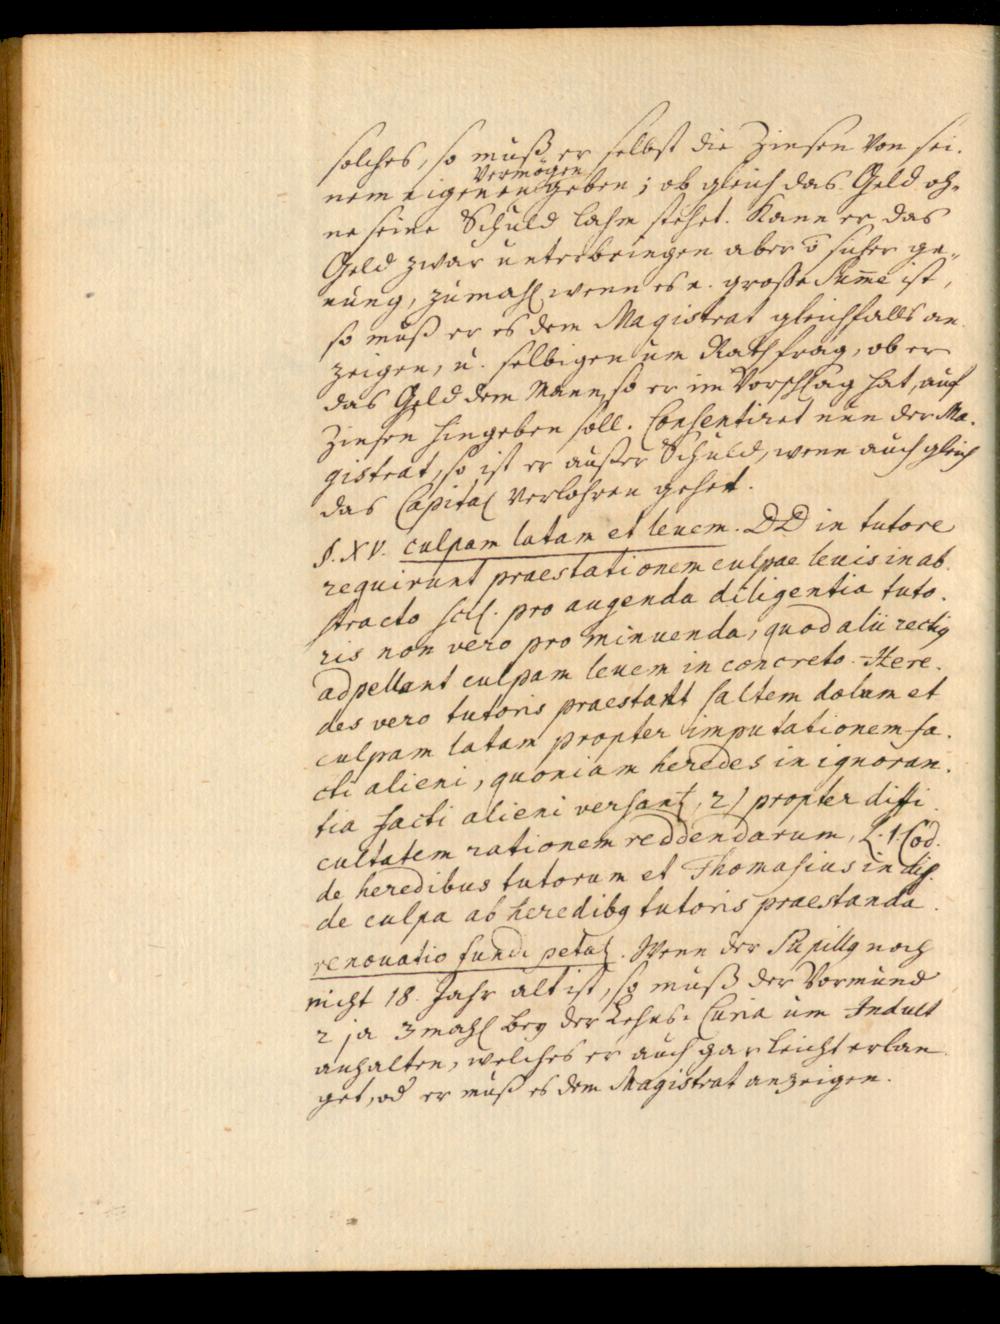 solches, so muß er selbst die Zinsen von sei-
Vermögen
nem eigenen geben; ob gleich das Geld oh-
ne seine Schuld lahm stehet. Kann er das
Geld zwar unterbringen aber õ sicher ge-
nung, zumahl wenn es e. große Sum̄e ist,
so muß er es dem Magistrat gleichfalls an
zeigen, u. selbigen um Rath frag, ob er
das Geld dem Mann, so er im Vorschlag hat, auf
Zinsen hingeben soll. Consentiret nun der Ma-
gistrat, so ist er außer Schuld, wenn auch gleich
das Capital verlohren gehet.
§. XV. culpam latam et levem. DD in tutore
requirunt praestationem culpae levis in ab
stracto scil. pro augenda diligentia tuto-
ris non vero pro minuenda, quod alii rectiq
adpellant culpam levem in concreto. Here-
des vero tutoris praestant saltem dolum et
culpam latam propter imputationem fa-
cti alieni, quoniam heredes in ignoran-
tia facti alieni versant, 2) propter diffi
cultatem rationem reddendarum, L. 1. Cod.
de heredibus tutorum et Thomasius in dis.
de culpa ab heredibq tutoris praestanda.
renovatio fundi petat. Wenn der Pupillq noch
nicht 18. Jahr alt ist, so muß der Vormund
2 ja 3 mahl bey der Lehns-Curia um Indult
anhalten, welches er auch gar leicht erlan
get, od er muß es dem Magistrat anzeigen.